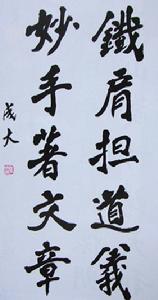 鐵肩担道義
妙手著文章
成大